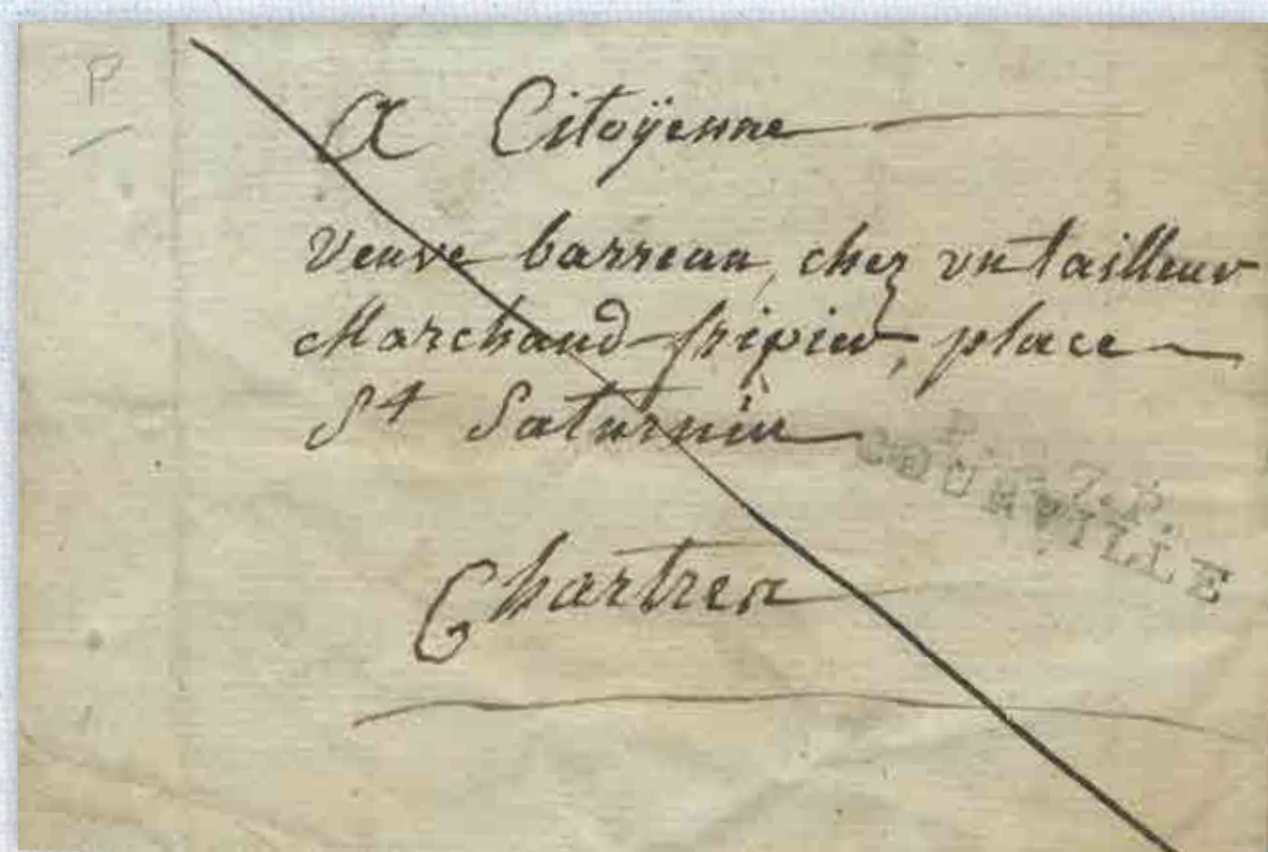 P
A Citoÿenne
Veuve barreau, chez un tailleur
Marchand fripier, place
St Saturnin
P. 27. P.
COURVILLE
Chartres